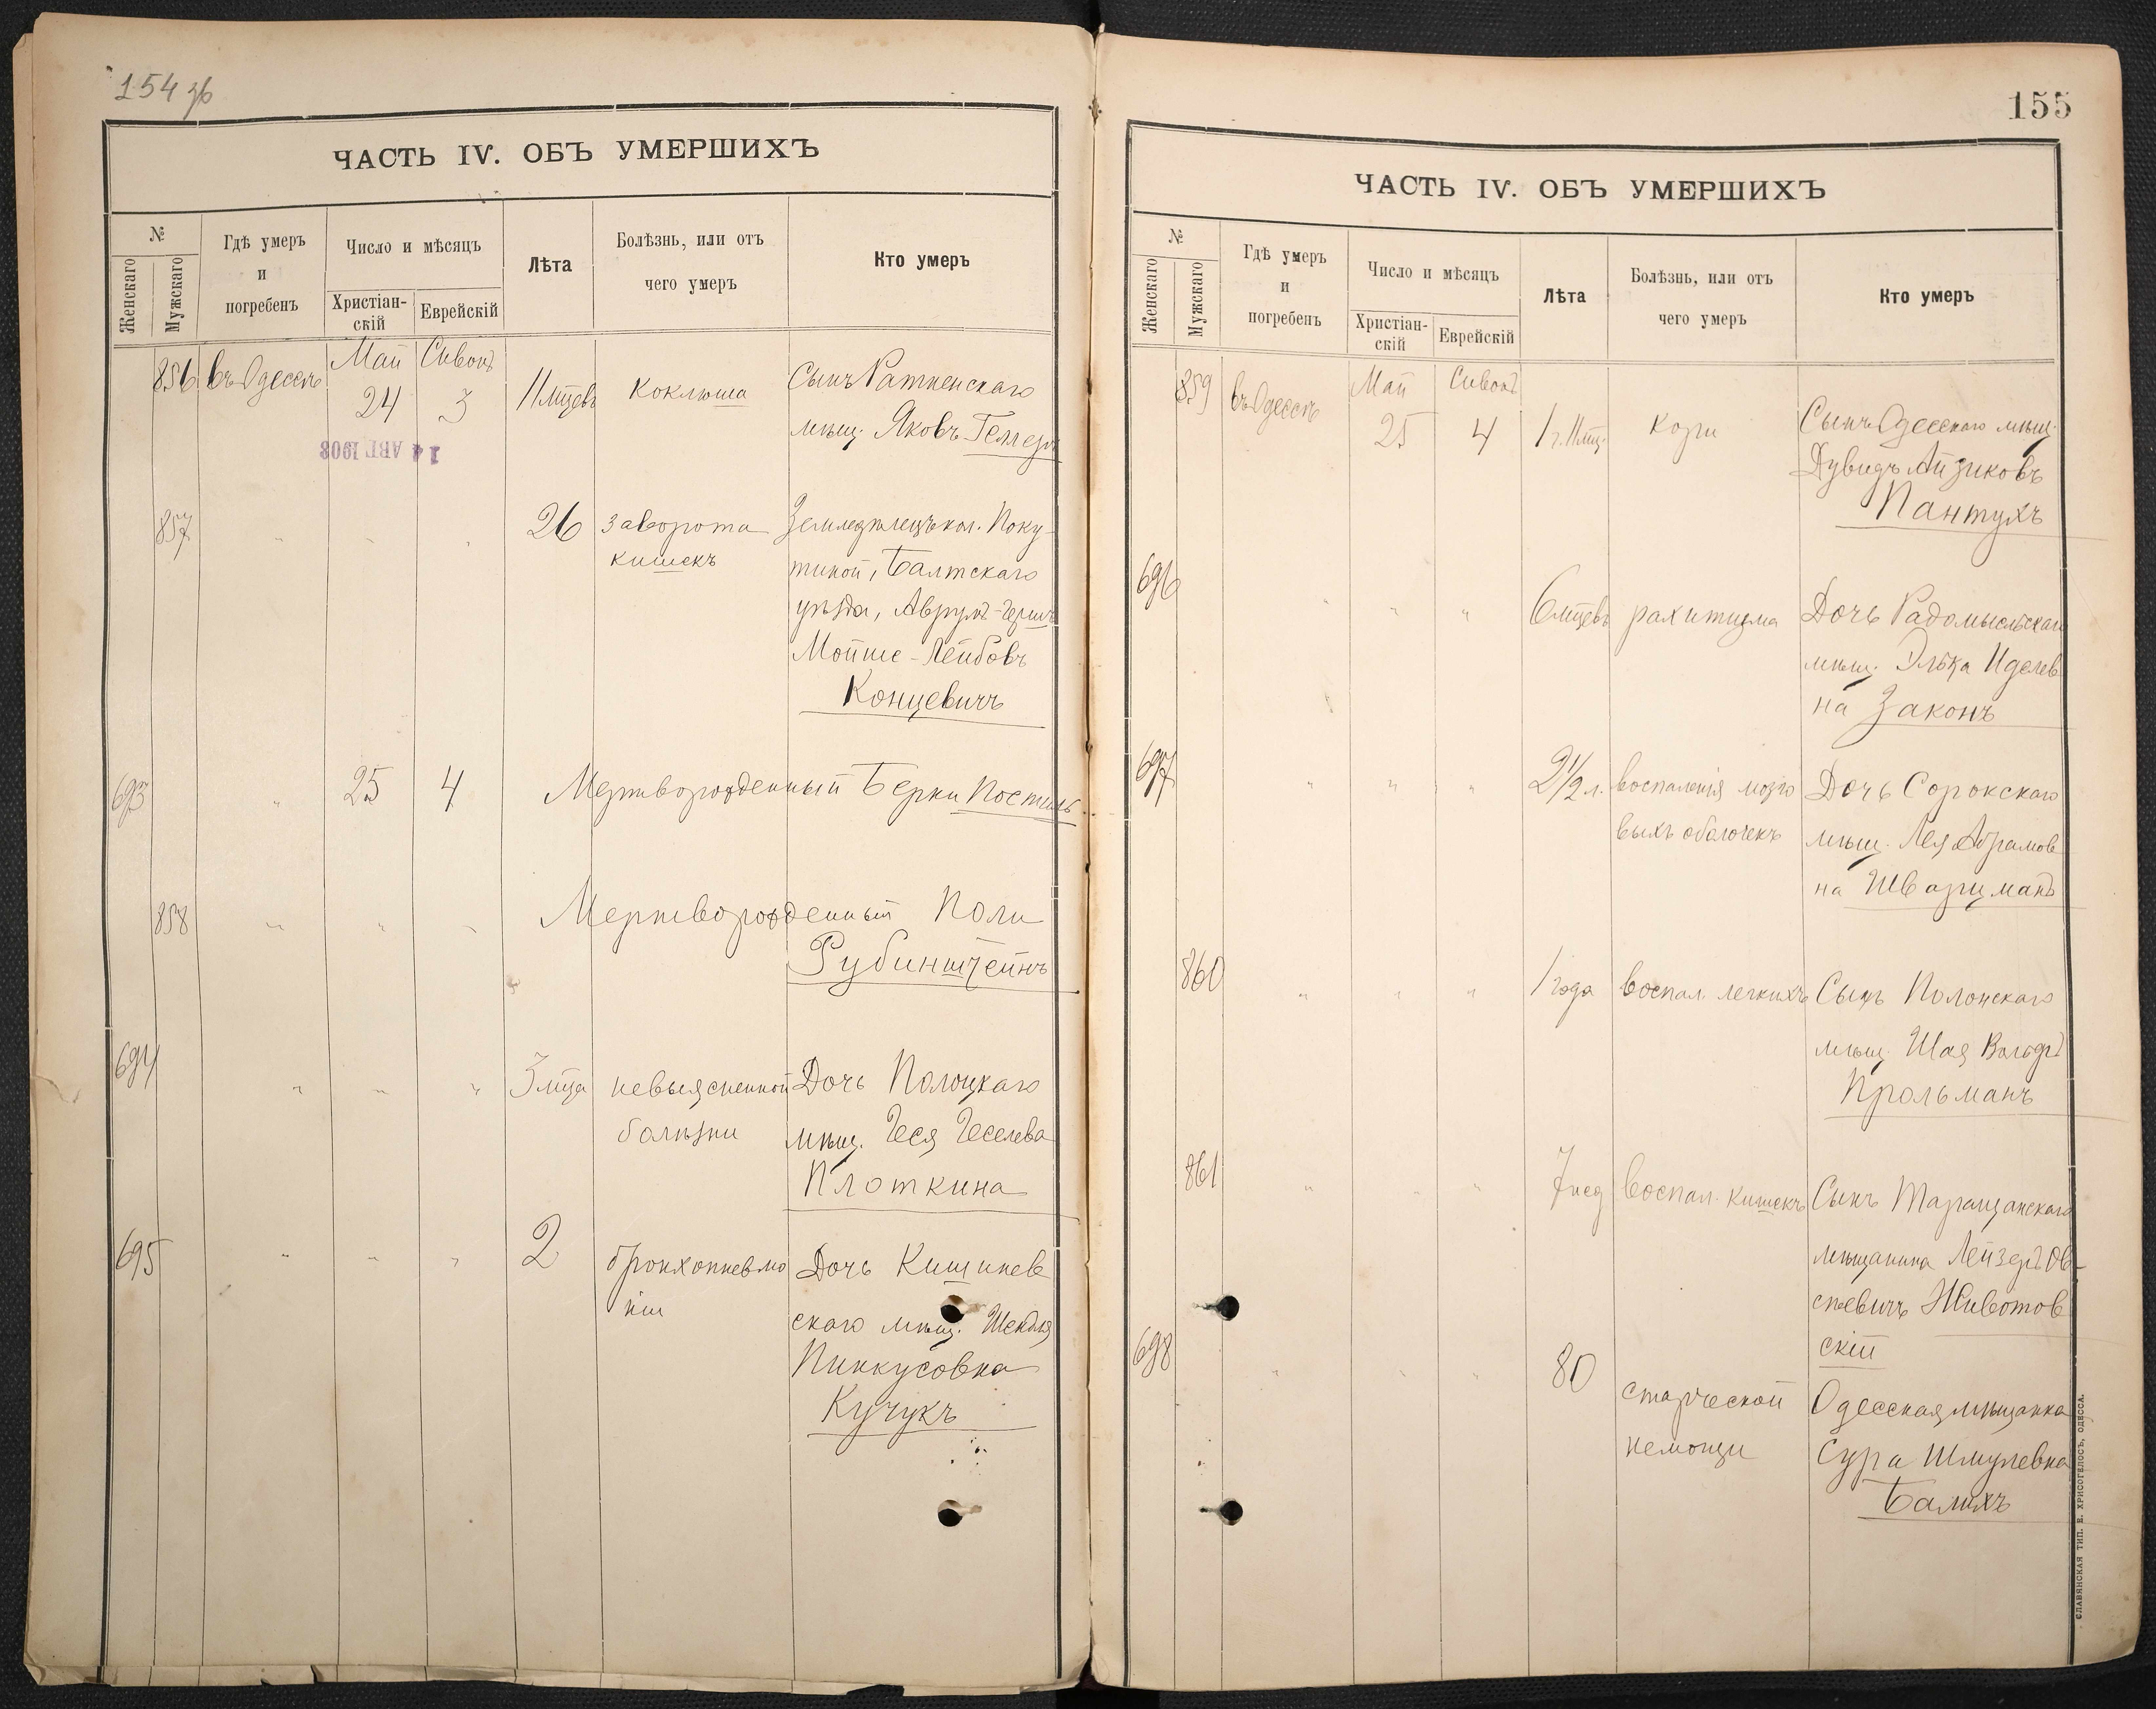 154 об
ЧАСТЬ IV. ОБЪ УМЕРШИХЪ
№
Женскаго
Мужскаго
Гдѣ умеръ
и
погребенъ
Число и мѣсяцъ
Христіан-
скій
Еврейскій
Лѣта
Болѣзнь, или отъ
чего умеръ
Кто умеръ
856 въ Одессѣ Май Сивонъ
24 3 11 мцевъ коклюша Сынъ Ратненскаго
мѣщ. Яковъ Геллеръ
14 АВГ 1908
857 " " " 26 заворота Земледѣлецъ кол. Поку-
кишекъ тиной, Балтскаго
уѣзда, Аврумъ-Герш
Мойше-Лейбовъ
Концевичъ
693 " 25 4 Мертворожденный Берки Постиль
858 " " " Мертворожденный Поли
Рубинштейнъ
694 " " " 3 мца невыясненной Дочь Полоцкаго
болѣзни мѣщ. Геся Геселева
Плоткина
695 " " " 2 бронхопневмо Дочь Кишинев
ніи скаго мѣщ. Шендля
Пинкусовна
Кучукъ
155
ЧАСТЬ IV. ОБЪ УМЕРШИХЪ
№
Женскаго
Мужскаго
Гдѣ умеръ
и
погребенъ
Число и мѣсяцъ
Христіан-
скій
Еврейскій
Лѣта
Болѣзнь, или отъ
чего умеръ
Кто умеръ
859 въ Одессѣ Май Сивонъ
25 4 1 г. 11 мц. кори Сынъ Одесскаго мѣщ.
Дувидъ Айзиковъ
Пантухъ
696 " " " 6 мцевъ рахитизма Дочь Радомысльскаго
мѣщ. Элька Иделев
на Законъ
697 " " " 2½ л. воспаленія мозго Дочь Сорокскаго
выхъ оболочекъ мѣщ. Лея Абрамов
на Шварцманъ
860 " " " 1 года воспал. легкихъ Сынъ Полонскаго
мѣщ. Шая Вольфъ
Прольманъ
861 " " " 7 нед воспал. кишекъ Сынъ Таращанскаго
мѣщанина Лейзеръ Ов-
сѣевичъ Животов
скій
698 " " " 80 старческой Одесская мѣщанка
немощи Сура Шмулевна
Балихъ
СЛАВЯНСКАЯ ТИП. Е. ХРИСОГЕЛОСЪ, ОДЕССА.